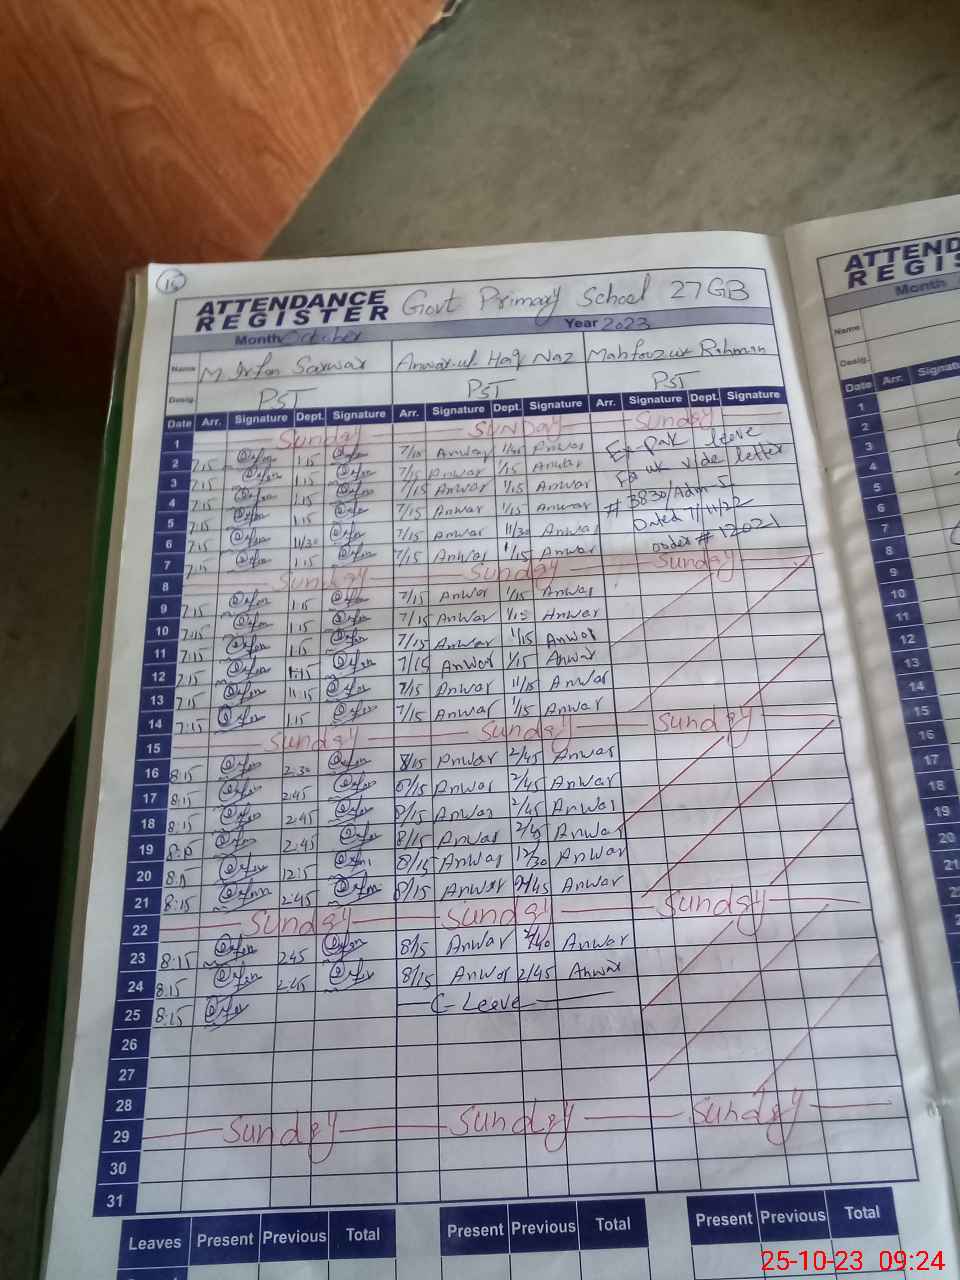 15
ATTENDANCE REGISTER Govt Primary School 27GB
Month October Year 2023
Name M Irfan Sarwar Anwar.ul.Haq Naz Mahfouzur Rahman
Desig. PST PST PST
Date Arr. Signature Dept. Signature Arr. Signature Dept. Signature Arr. Signature Dept. Signature
1 Sunday Sunday Sunday
2 7:15 1:15 7/15 Anwar Anwar Ex-Pak leave
3 7:15 1:15 7/15 Anwar 1/15 Anwar vide letter
4 7:15 1:15 7/15 Anwar 1/15 Anwar # 3830/Adm-I
5 7:15 1:15 7/15 Anwar 1/15 Anwar Dated 7/11/22
6 7:15 11/30 7/15 Anwar 11/30 Anwar order # 12021
7 7:15 1:15 7/15 Anwar 1/15 Anwar
8 Sunday Sunday Sunday
9 7:15 1:15 7/15 Anwar 1/15 Anwar
10 7:15 1:15 7/15 Anwar 1/15 Anwar
11 7:15 1:15 7/15 Anwar 1/15 Anwar
12 7:15 1:15 7/15 Anwar 1/15 Anwar
13 7:15 11:15 7/15 Anwar 11/15 Anwar
14 7:15 1:15 7/15 Anwar 1/15 Anwar
15 Sunday Sunday Sunday
16 8:15 2:30 8/15 Anwar 2/45 Anwar
17 8:15 2:45 8/15 Anwar 2/45 Anwar
18 8:15 2:45 8/15 Anwar 2/45 Anwar
19 8:15 2:45 8/15 Anwar 2/45 Anwar
20 8:15 12:15 8/15 Anwar 12/30 Anwar
21 8:15 2:45 8/15 Anwar 2/45 Anwar
22 Sunday Sunday Sunday
23 8:15 2:45 8/15 Anwar 2/40 Anwar
24 8:15 2:45 8/15 Anwar 2/45 Anwar
25 8:15 C-Leave
26
27
28
29 Sunday Sunday Sunday
30
31
Leaves Present Previous Total Present Previous Total Present Previous Total
ATTEND
REGIS
Month
Name
Desig.
Date Arr. Signatu
1
2
3
4
5
6
7
8
9
10
11
12
13
14
15
16
17
18
19
20
21
25-10-23 09:24